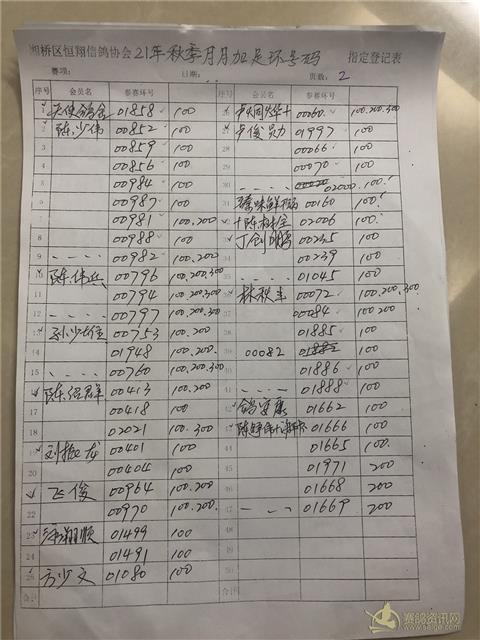 湘桥区恒翔信鸽协会 21年秋季月月加足环号码 指定登记表
赛项: 日期: 页数: 2
序号 会员名 参赛环号 序号 会员名 参赛环号
天使鸽舍 01858 100 100.200.300
陈少伟 00852 100 卢俊员力 01997 100
3 00859 100 28 00066 100
00856 100 00070 100
00984 100 02000 100
00987 100 00160 100
00981 100.200 02006 100
00988 100 丁创鹏 00235 100
9 00982 100.200 34 00239 100
10 陈伟兵 00796 100.200.300 01045 100
11 00794 100.200.300 林秋丰 00072 100.200.300
12 00797 100.200.300 00084 100.200
13 00753 100.200 01885 100
14 01948 100.200 00082 100
15 00760 100.200.300 01886 100
陈绍群 00413 100.200 01888 100
17 00418 100 01662 100
18 02021 100.300 01666 100
00401 100 01665 100
20 00404 100 01971 200
飞俊 00964 100.200 01668 200
22 00970 100.200 01669 200
23 01499 100
24 01491 100
25 方少文 01080 100
合计 合计
赛鸽资讯网